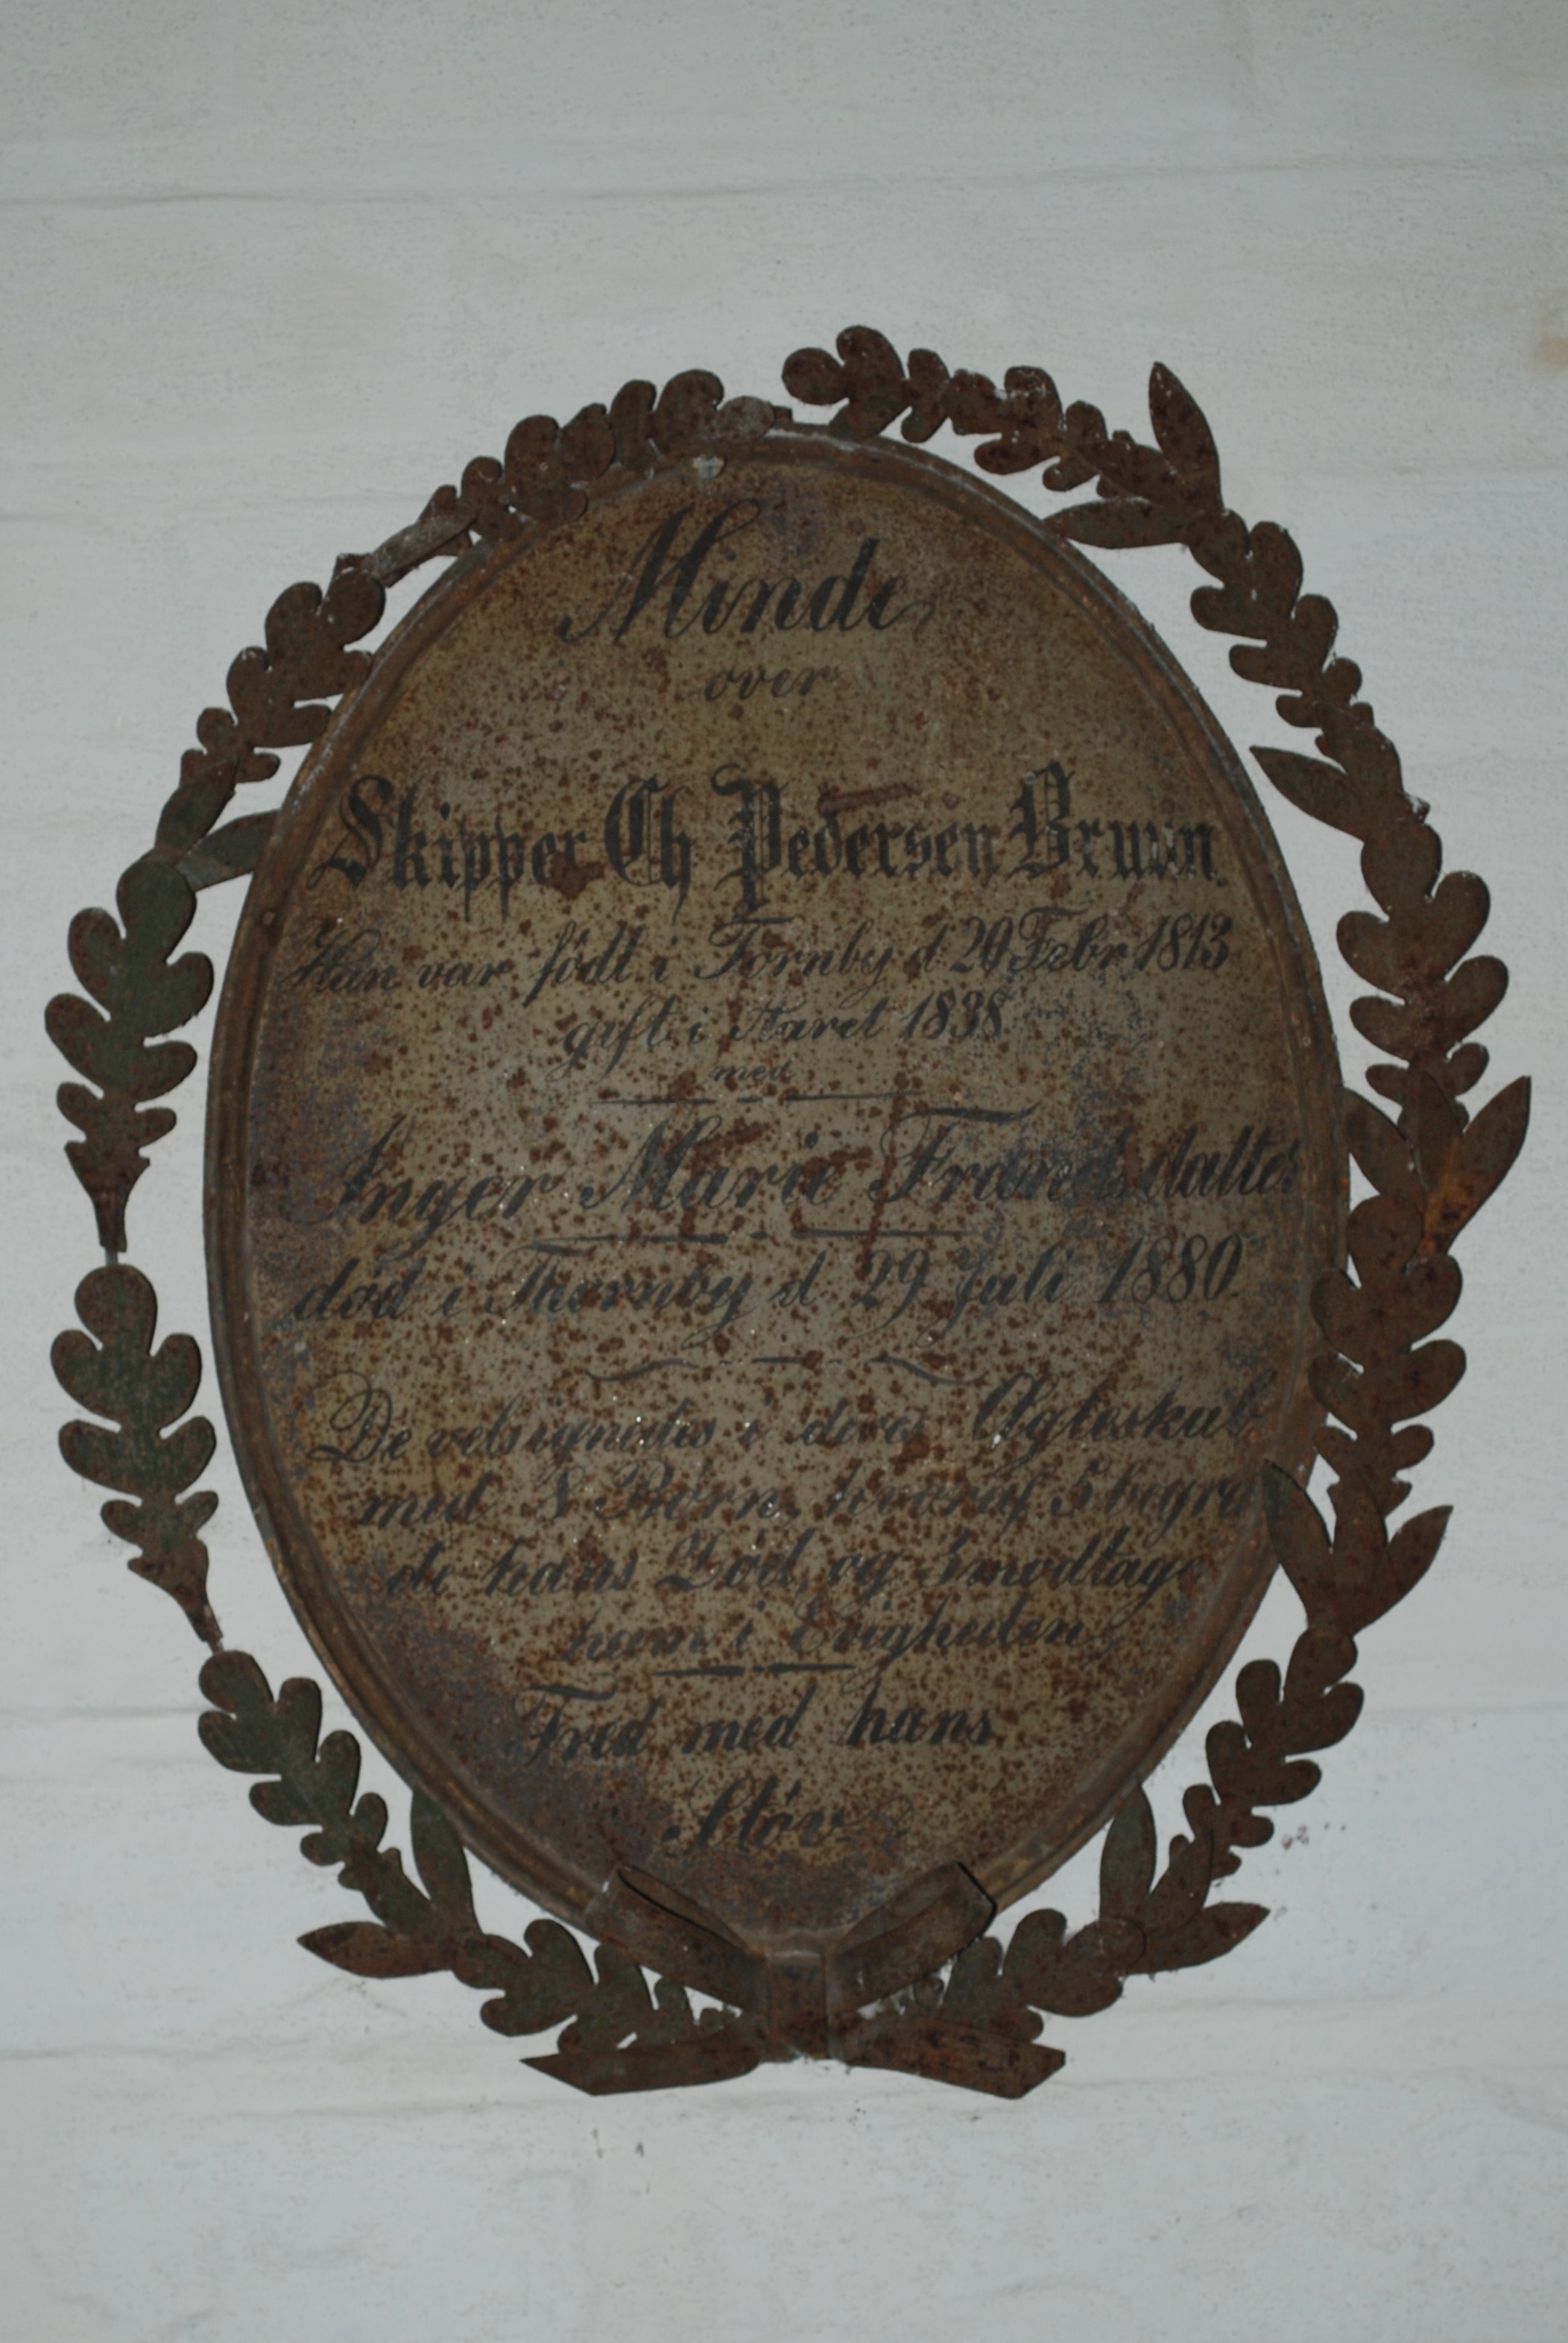 Minde
over
Skipper Ch Pedersen Bruun
Han var födt i Tornby d 20 Febr 1813
gift i Aaret 1838
med
Inger Marie datter
död i Thornby d 29 Juli 1880
De velsignedes i deres Ægteskab
med 8 Børn, hvoraf 5 begræ
de hans Død, og 3 modtage
ham i Evigheden,
Fred med hans
Støv